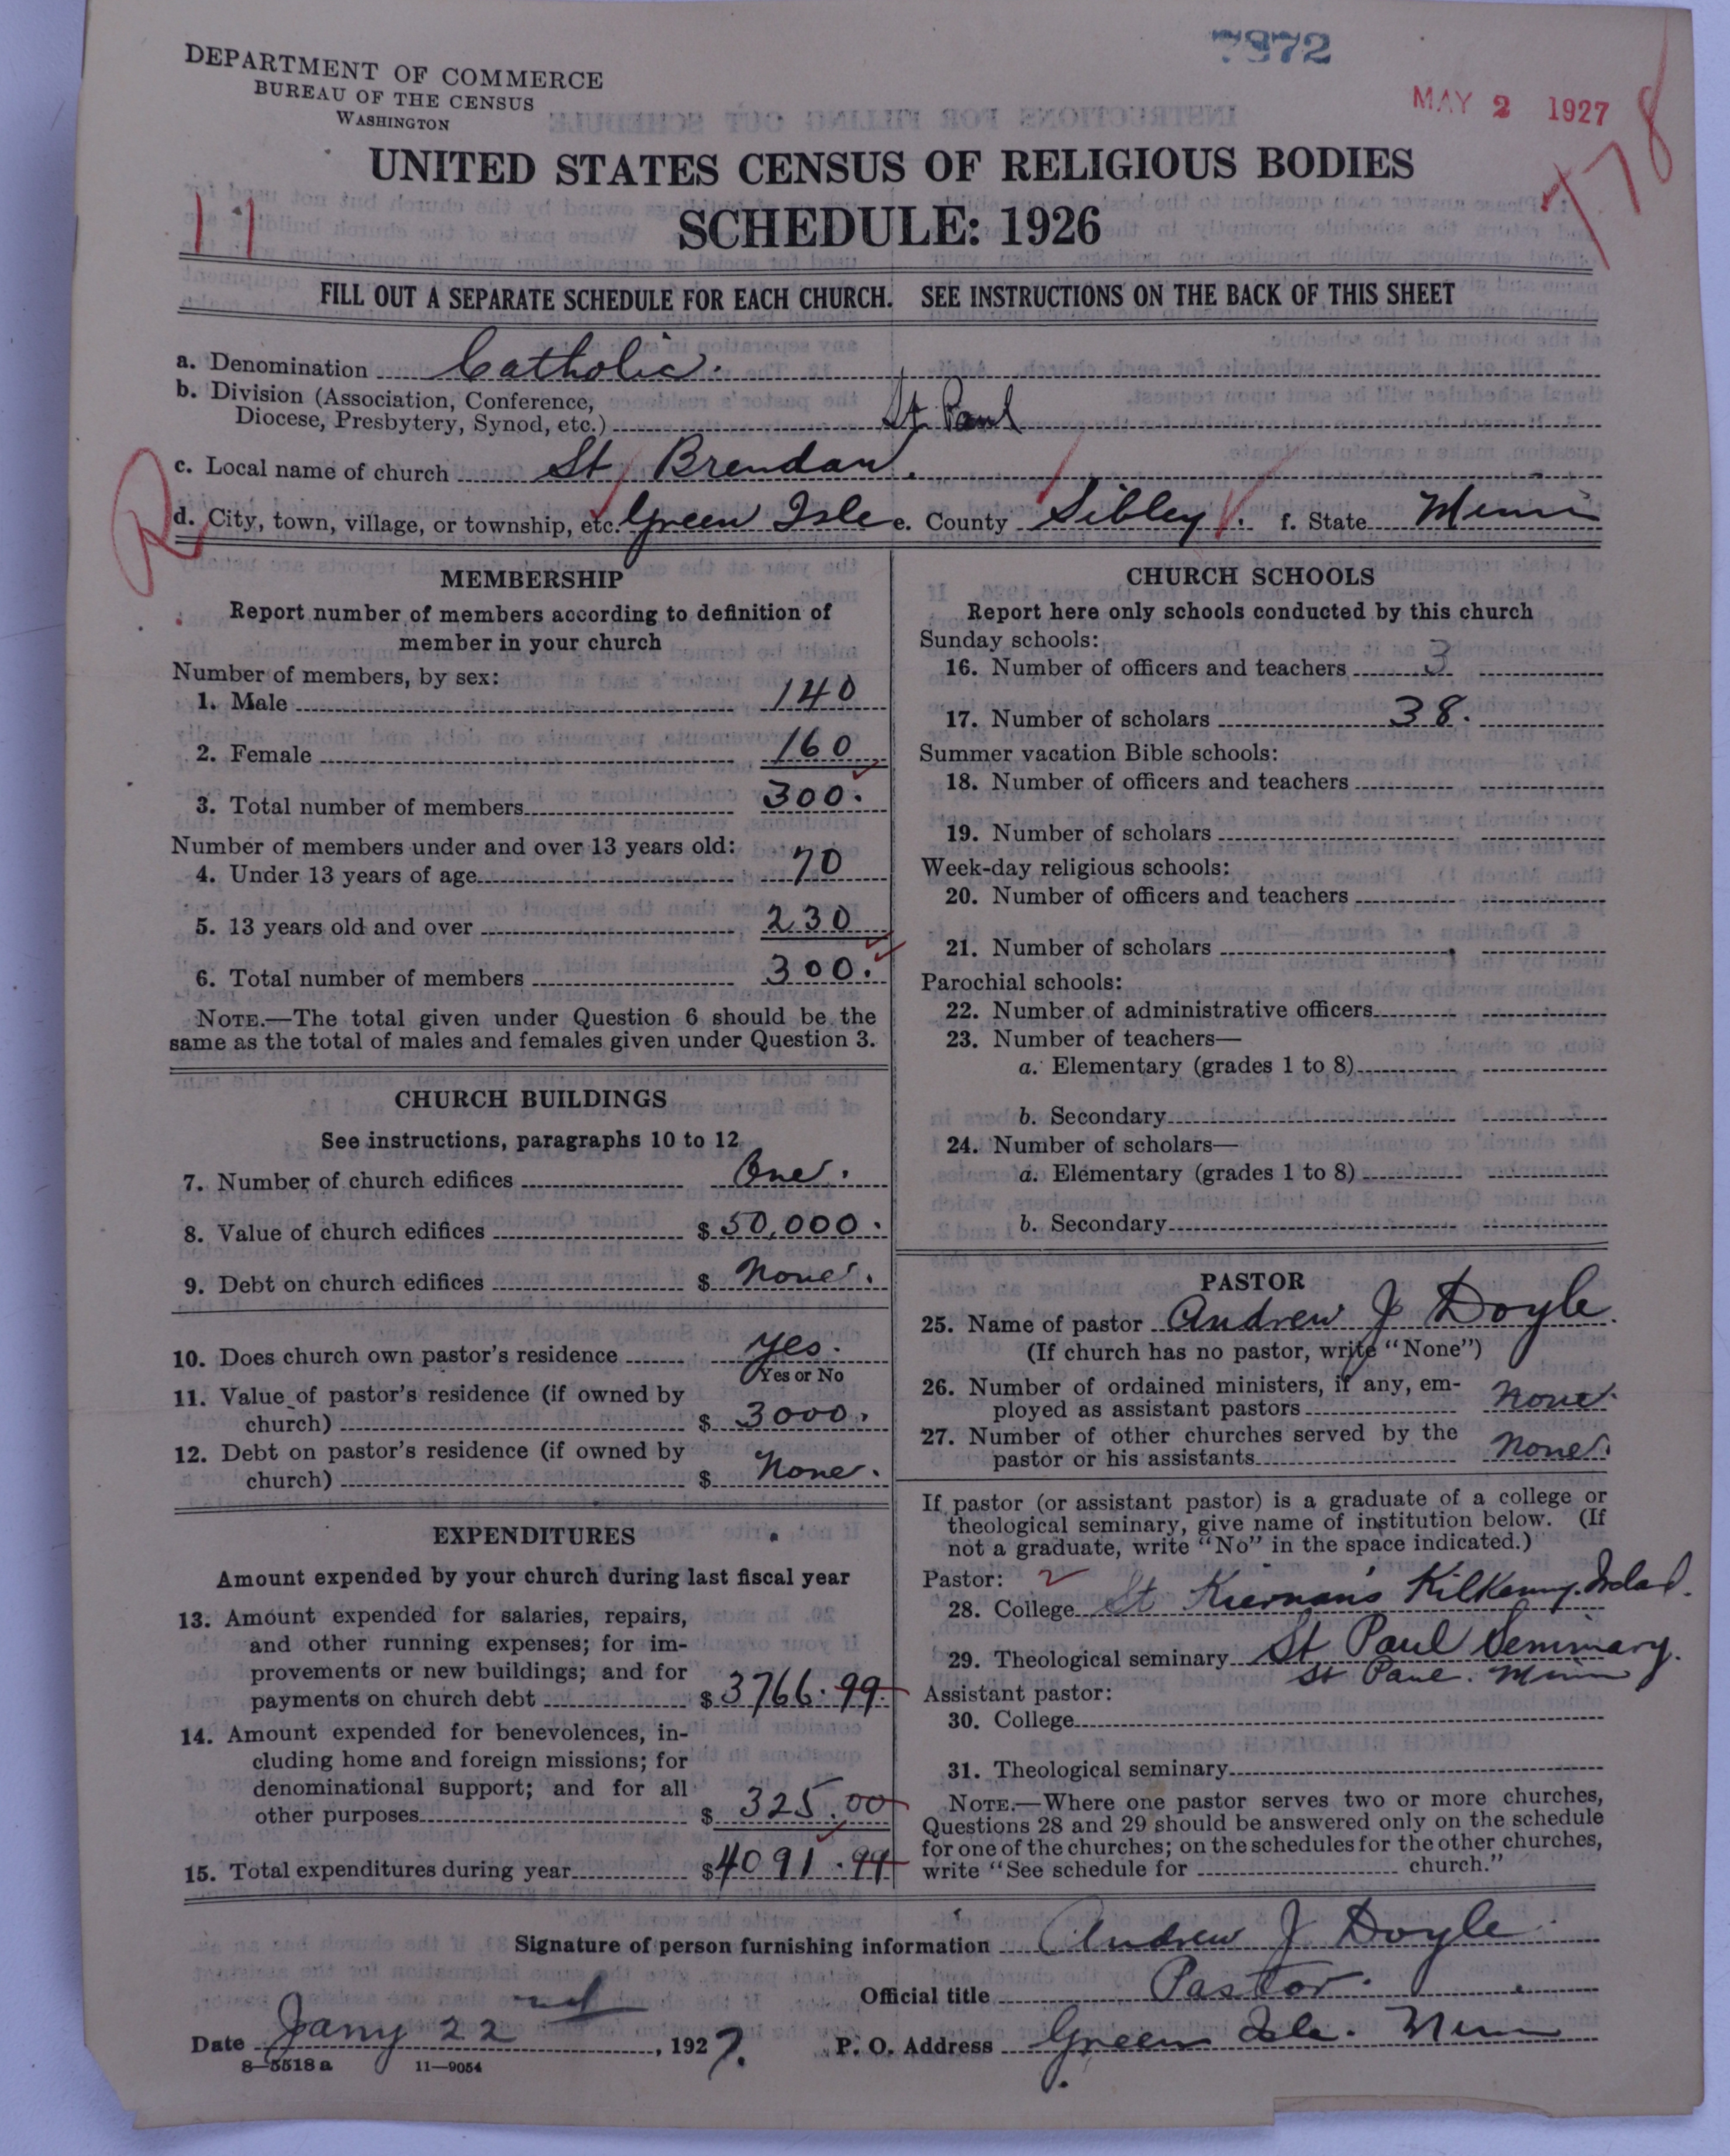 7872
DEPARTMENT OF COMMERCE
BUREAU OF THE CENSUS
WASHINGTON
MAY 2 1927
178
UNITED STATES CENSUS OF RELIGIOUS BODIES
11
SCHEDULE: 1926
FILL OUT A SEPARATE SCHEDULE FOR EACH CHURCH. SEE INSTRUCTIONS ON THE BACK OF THIS SHEET
a. Denomination Catholic.
b. Division (Association, Conference,
Diocese, Presbytery, Synod, etc.) St. Paul
c. Local name of church St Brendan.
R
d. City, town, village, or township, etc. Green Isle e. County Sibley. f. State Minn
MEMBERSHIP
Report number of members according to definition of
member in your church
Number of members, by sex:
1. Male 140
2. Female 160
3. Total number of members 300.
Number of members under and over 13 years old:
4. Under 13 years of age 70
5. 13 years old and over 230
6. Total number of members 300.
NOTE.—The total given under Question 6 should be the
same as the total of males and females given under Question 3.
CHURCH BUILDINGS
See instructions, paragraphs 10 to 12
7. Number of church edifices One.
8. Value of church edifices $ 50,000.
9. Debt on church edifices $ None.
10. Does church own pastor's residence yes.
Yes or No
11. Value of pastor's residence (if owned by
church) $ 3000.
12. Debt on pastor's residence (if owned by
church) $ None.
EXPENDITURES
Amount expended by your church during last fiscal year
13. Amount expended for salaries, repairs,
and other running expenses; for im-
provements or new buildings; and for
payments on church debt $ 3766.99
14. Amount expended for benevolences, in-
cluding home and foreign missions; for
denominational support; and for all
other purposes $ 325.00
15. Total expenditures during year $ 4091.99
CHURCH SCHOOLS
Report here only schools conducted by this church
Sunday schools:
16. Number of officers and teachers 3
17. Number of scholars 38.
Summer vacation Bible schools:
18. Number of officers and teachers
19. Number of scholars
Week-day religious schools:
20. Number of officers and teachers
21. Number of scholars
Parochial schools:
22. Number of administrative officers
23. Number of teachers—
a. Elementary (grades 1 to 8)
b. Secondary
24. Number of scholars—
a. Elementary (grades 1 to 8)
b. Secondary
PASTOR
25. Name of pastor Andrew J Doyle.
(If church has no pastor, write "None")
26. Number of ordained ministers, if any, em-
ployed as assistant pastors None.
27. Number of other churches served by the
pastor or his assistants None.
If pastor (or assistant pastor) is a graduate of a college or
theological seminary, give name of institution below. (If
not a graduate, write "No" in the space indicated.)
Pastor:
28. College St Kiernan's Kilkenny. Ireland.
29. Theological seminary St Paul Seminary.
St Paul. Minn
Assistant pastor:
30. College
31. Theological seminary
NOTE.—Where one pastor serves two or more churches,
Questions 28 and 29 should be answered only on the schedule
for one of the churches; on the schedules for the other churches,
write "See schedule for church."
Signature of person furnishing information Andrew J Doyle
Official title Pastor.
Date Jany 22 nd, 1927. P. O. Address Green Isle. Minn
8—5518 a 11—9054